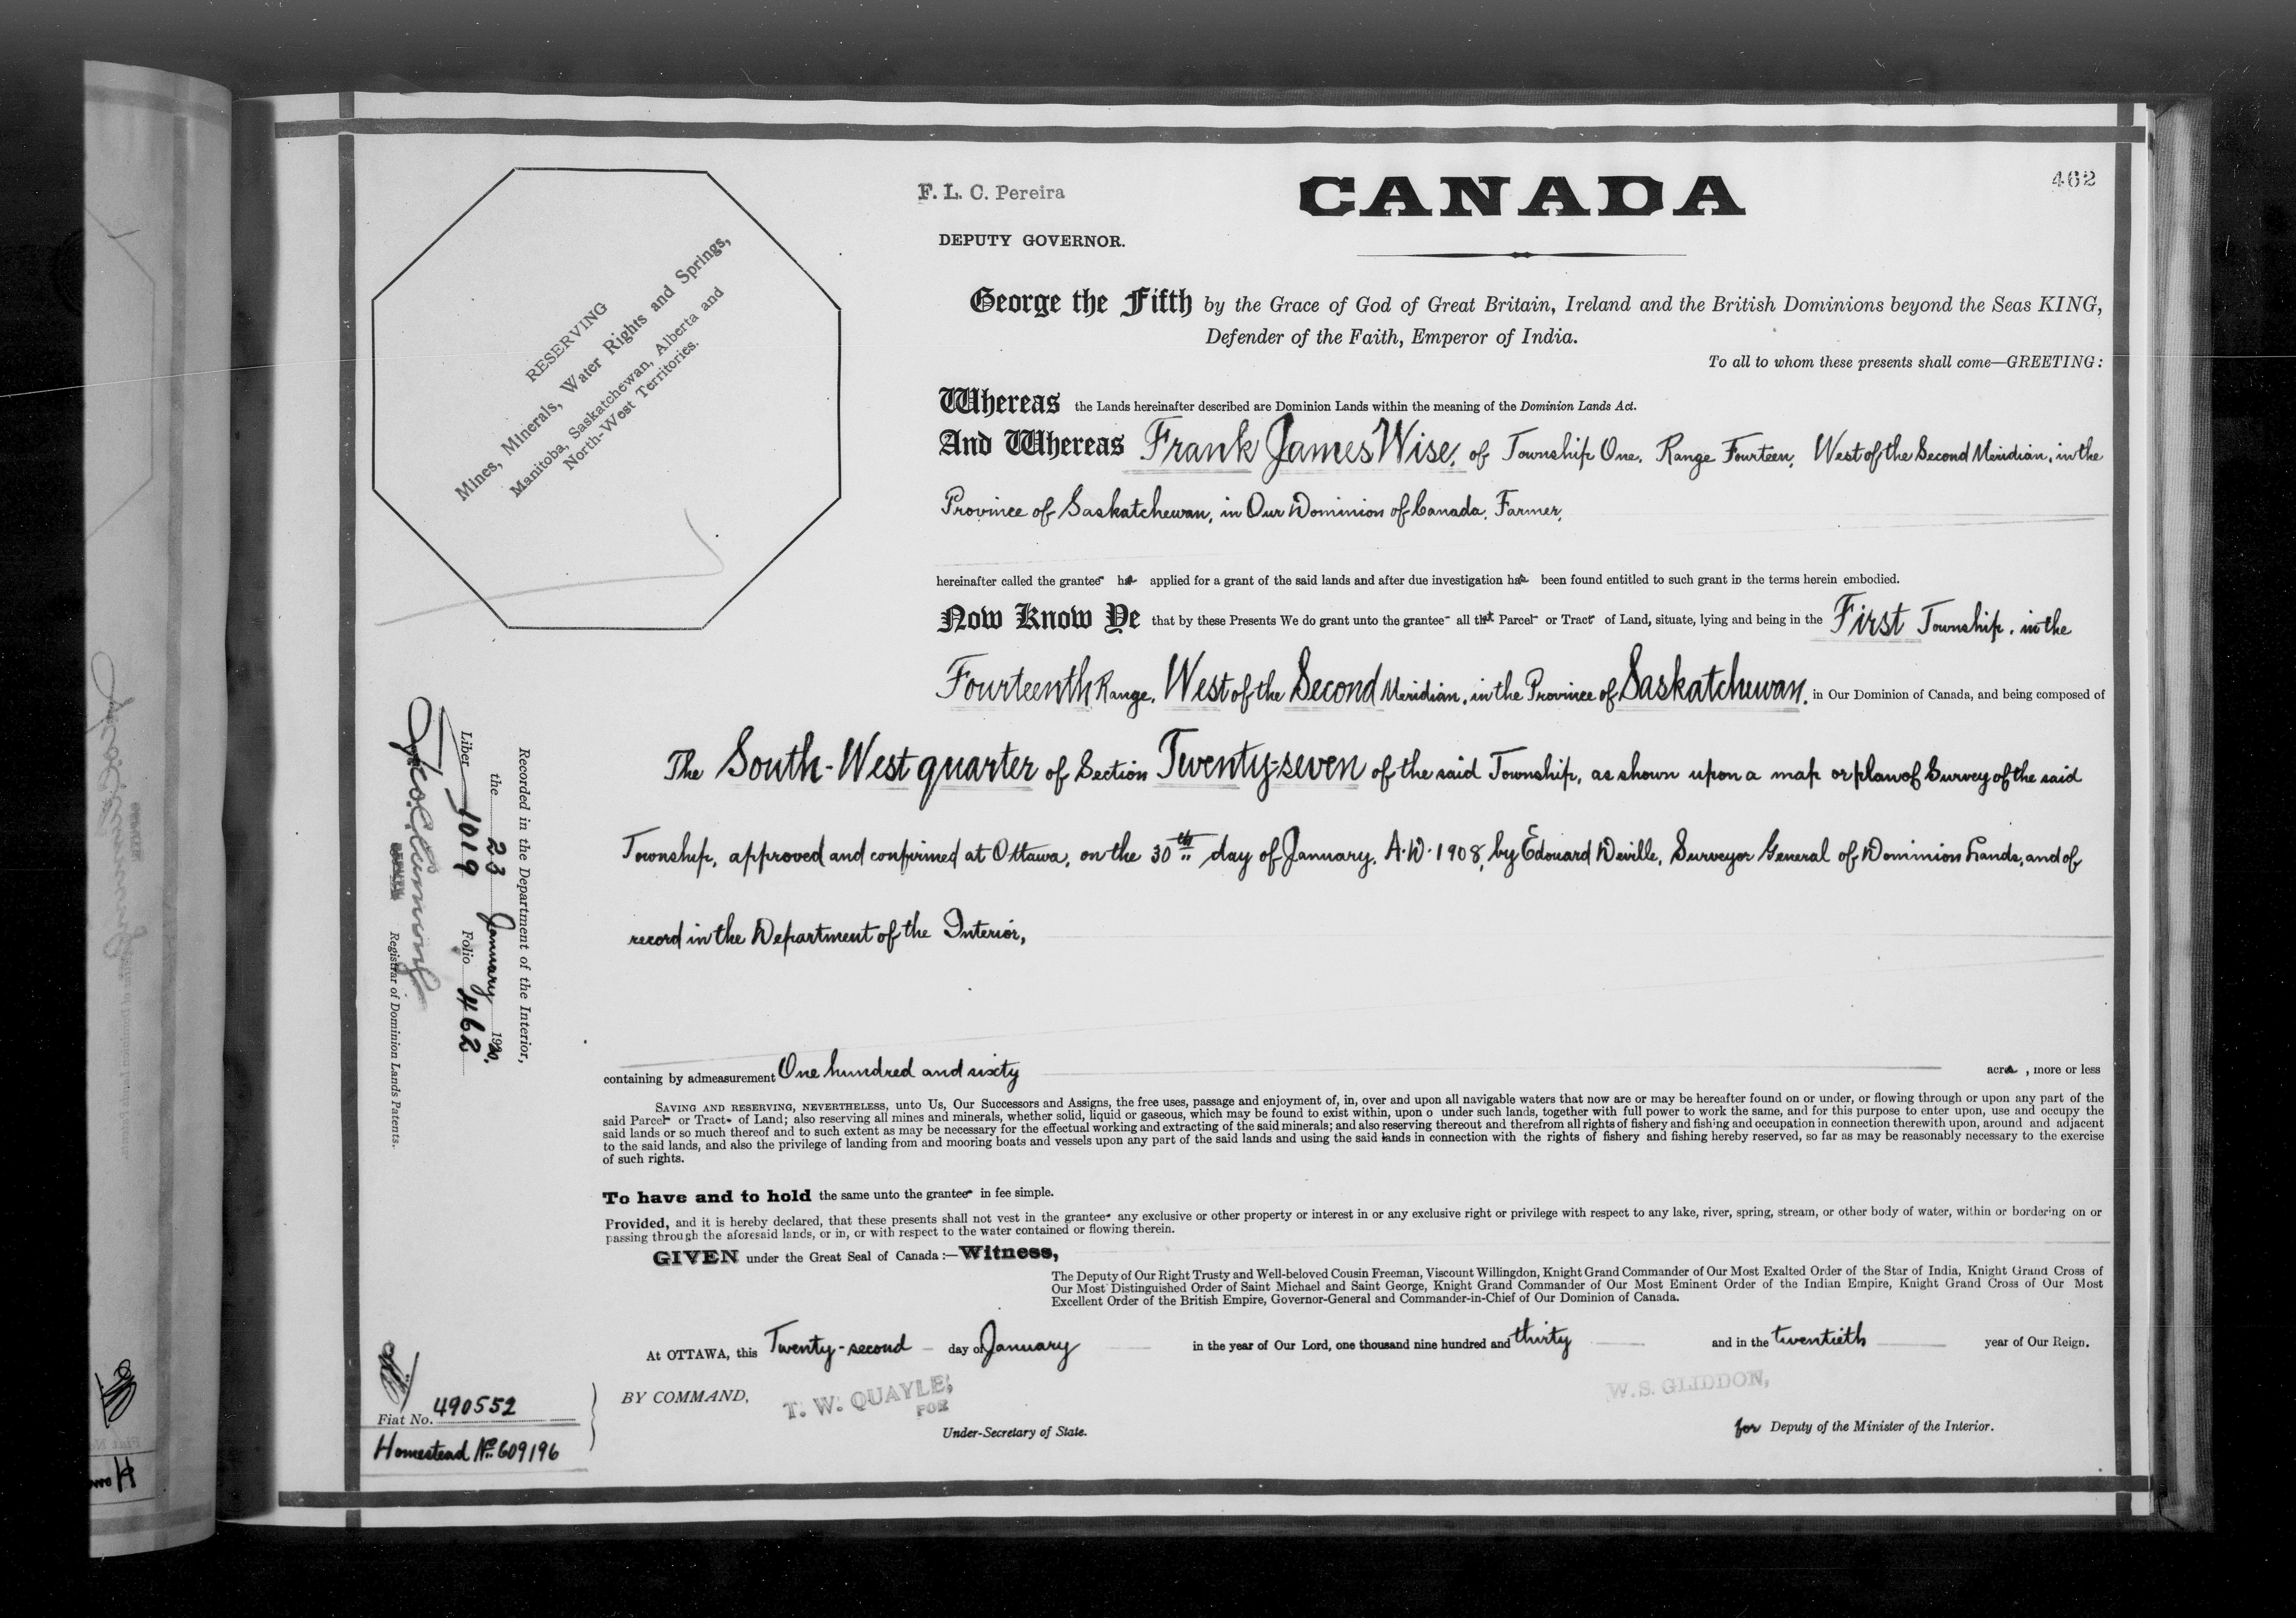 F. L. C. Pereira
CANADA
462
DEPUTY GOVERNOR.
RESERVING
Mines, Minerals, Water Rights and Springs,
Manitoba, Saskatchewan, Alberta and
North-West Territories.
George the Fifth by the Grace of God of Great Britain, Ireland and the British Dominions beyond the Seas KING,
Defender of the Faith, Emperor of India.
To all to whom these presents shall come—GREETING:
Whereas the Lands hereinafter described are Dominion Lands within the meaning of the Dominion Lands Act.
And Whereas Frank James Wise, of Township One, Range Fourteen, West of the Second Meridian, in the
Province of Saskatchewan, in Our Dominion of Canada, Farmer,
hereinafter called the grantee has applied for a grant of the said lands and after due investigation has been found entitled to such grant in the terms herein embodied.
Now Know Ye that by these Presents We do grant unto the grantee all that Parcel or Tract of Land, situate, lying and being in the First Township, in the
Fourteenth Range, West of the Second Meridian, in the Province of Saskatchewan, in Our Dominion of Canada, and being composed of
The South-West quarter of Section Twenty-seven of the said Township, as shown upon a map or plan of Survey of the said
Township, approved and confirmed at Ottawa, on the 30th day of January, A.D. 1908, by Edouard Deville, Surveyor General of Dominion Lands, and of
record in the Department of the Interior,
Recorded in the Department of the Interior,
the 23 January 1930.
Liber 1019 Folio 462
Registrar of Dominion Lands Patents.
containing by admeasurement One hundred and sixty acres, more or less
SAVING AND RESERVING, NEVERTHELESS, unto Us, Our Successors and Assigns, the free uses, passage and enjoyment of, in, over and upon all navigable waters that now are or may be hereafter found on or under, or flowing through or upon any part of the
said Parcel or Tract of Land; also reserving all mines and minerals, whether solid, liquid or gaseous, which may be found to exist within, upon o under such lands, together with full power to work the same, and for this purpose to enter upon, use and occupy the
said lands or so much thereof and to such extent as may be necessary for the effectual working and extracting of the said minerals; and also reserving thereout and therefrom all rights of fishery and fishing and occupation in connection therewith upon, around and adjacent
to the said lands, and also the privilege of landing from and mooring boats and vessels upon any part of the said lands and using the said lands in connection with the rights of fishery and fishing hereby reserved, so far as may be reasonably necessary to the exercise
of such rights.
To have and to hold the same unto the grantee in fee simple.
Provided, and it is hereby declared, that these presents shall not vest in the grantee any exclusive or other property or interest in or any exclusive right or privilege with respect to any lake, river, spring, stream, or other body of water, within or bordering on or
passing through the aforesaid lands, or in, or with respect to the water contained or flowing therein.
GIVEN under the Great Seal of Canada:—Witness,
The Deputy of Our Right Trusty and Well-beloved Cousin Freeman, Viscount Willingdon, Knight Grand Commander of Our Most Exalted Order of the Star of India, Knight Grand Cross of
Our Most Distinguished Order of Saint Michael and Saint George, Knight Grand Commander of Our Most Eminent Order of the Indian Empire, Knight Grand Cross of Our Most
Excellent Order of the British Empire, Governor-General and Commander-in-Chief of Our Dominion of Canada.
At OTTAWA, this Twenty-second day of January in the year of Our Lord, one thousand nine hundred and thirty and in the twentieth year of Our Reign.
BY COMMAND,
T. W. QUAYLE,
FOR
Under-Secretary of State.
W. S. GLIDDON,
for Deputy of the Minister of the Interior.
Fiat No. 490552
Homestead No. 609196